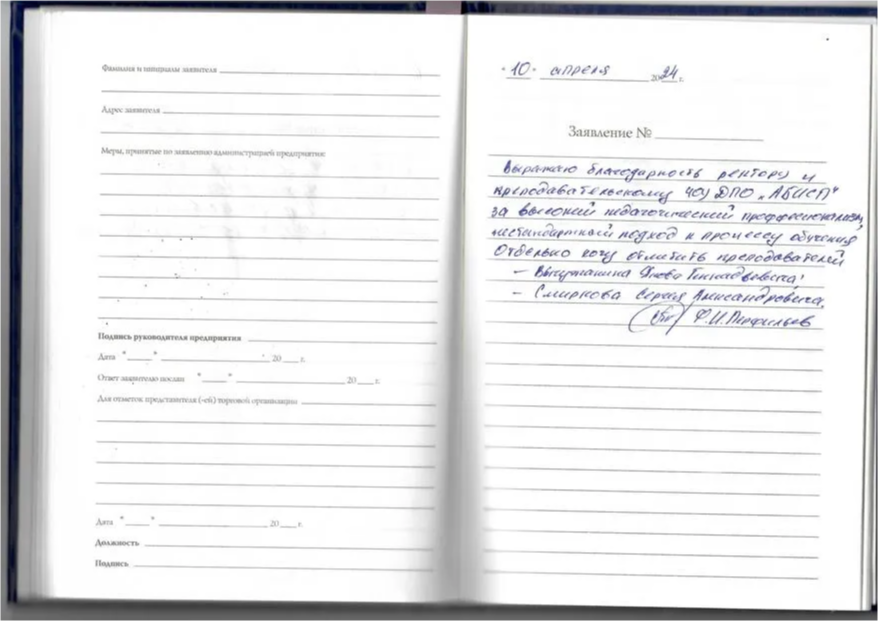 Фамилия и инициалы заявителя
Адрес заявителя
Меры, принятые по заявлению администрацией предприятия:
Подпись руководителя предприятия
Дата " " 20 г.
Ответ заявителю послан " " 20 г.
Для отметок представителя (-ей) торговой организации
Дата " " 20 г.
Должность
Подпись
"10" апреля 2024 г.
Заявление №
Выражаю благодарность ректору и
преподавательскому ЧОУ ДПО „АБиСП"
за высокий педагогический профессионализм,
нестандартный подход к процессу обучения
Отдельно хочу отметить преподавателей
- Геннадьевича!
- Смирнова Сергея Александровича.
Ф.И. Перфильев